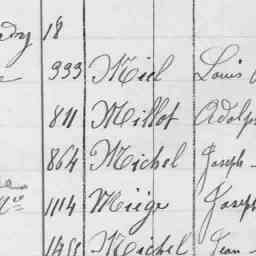 18
993 Miel Louis
811 Millot Adolp
864 Michel Joseph
1114 Miége Joseph
Michel Jean